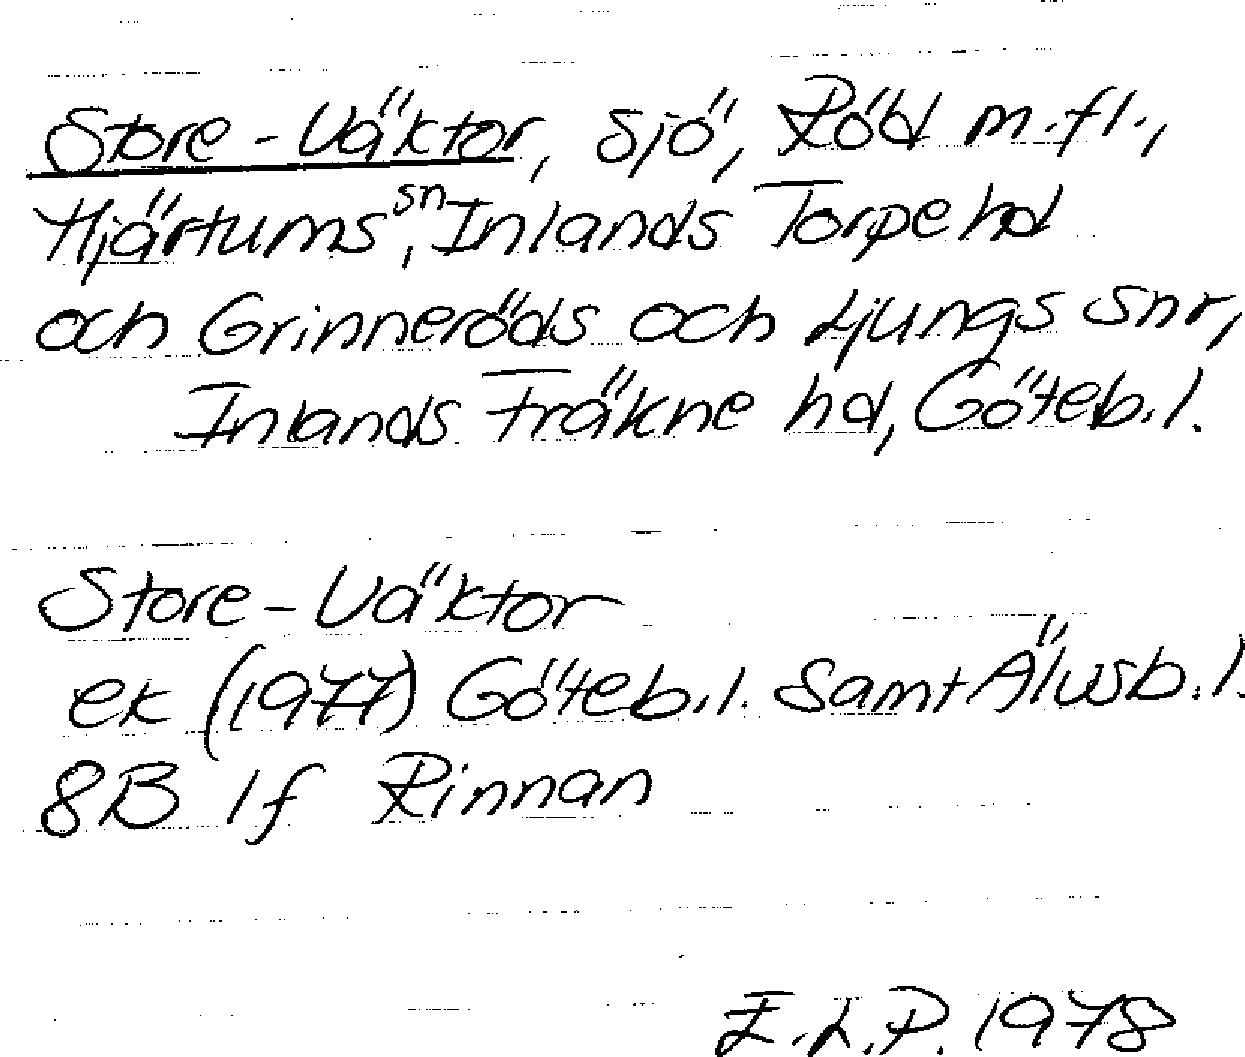 Store-Väktor, sjö, Röd m.fl.,
Hjärtums sn, Inlands Torpe hd
och Grinneröds och Ljungs snr,
Inlands Fräkne hd, Göteb.l.
Store-Väktor
ek (1977) Göteb.l. samt Älvsb.l.
8B 1f Rinnan
E.L.P. 1978